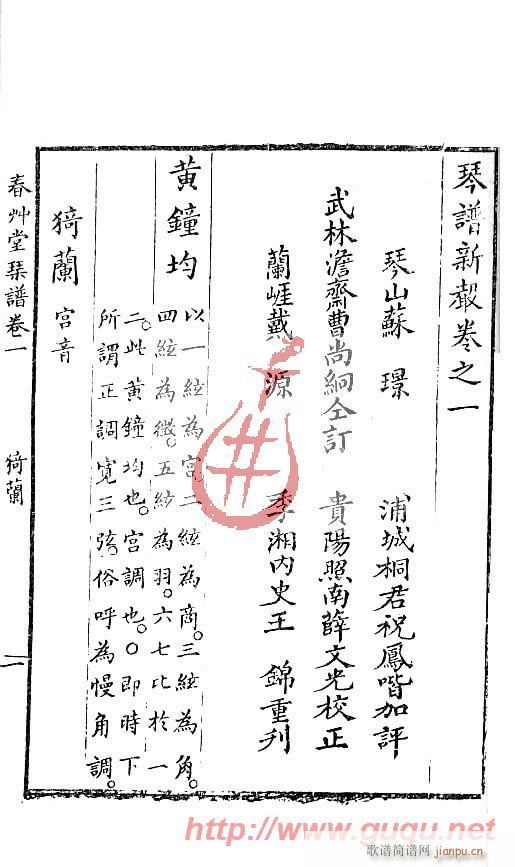 琴譜新聲卷之一
琴山蘇　璟
浦城桐君祝鳳喈加評
武林澹齋曹尚絅仝訂
貴陽照南薛文光校正
蘭崖戴　源
季湘內史王　錦重刊
黃鐘均
以一絃為宮。二絃為商。三絃為角。
四絃為徵。五絃為羽。六七比於一
二。此黃鐘均也。宮調也。○即時下
所謂正調寬三弦。俗呼為慢角調。
猗蘭 宮音
春艸堂琴譜卷一
猗蘭
一
http://www.guqu.net
歌谱简谱网
jianpu.cn